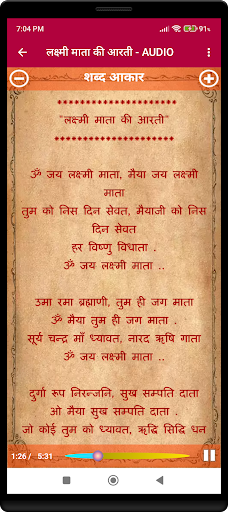 7:04 PM
91%
लक्ष्मी माता की आरती - AUDIO
शब्द आकार
********************
"लक्ष्मी माता की आरती"
********************
ॐ जय लक्ष्मी माता, मैया जय लक्ष्मी
माता
तुम को निस दिन सेवत, मैयाजी को निस
दिन सेवत
हर विष्णु विधाता .
ॐ जय लक्ष्मी माता ..
उमा रमा ब्रह्माणी, तुम ही जग माता
ओ मैया तुम ही जग माता .
सूर्य चन्द्र माँ ध्यावत, नारद ऋषि गाता
ॐ जय लक्ष्मी माता ..
दुर्गा रूप निरन्जनि, सुख सम्पति दाता
ओ मैया सुख सम्पति दाता .
जो कोई तुम को ध्यावत, ऋद्धि सिद्धि धन
1:26 / 5:31